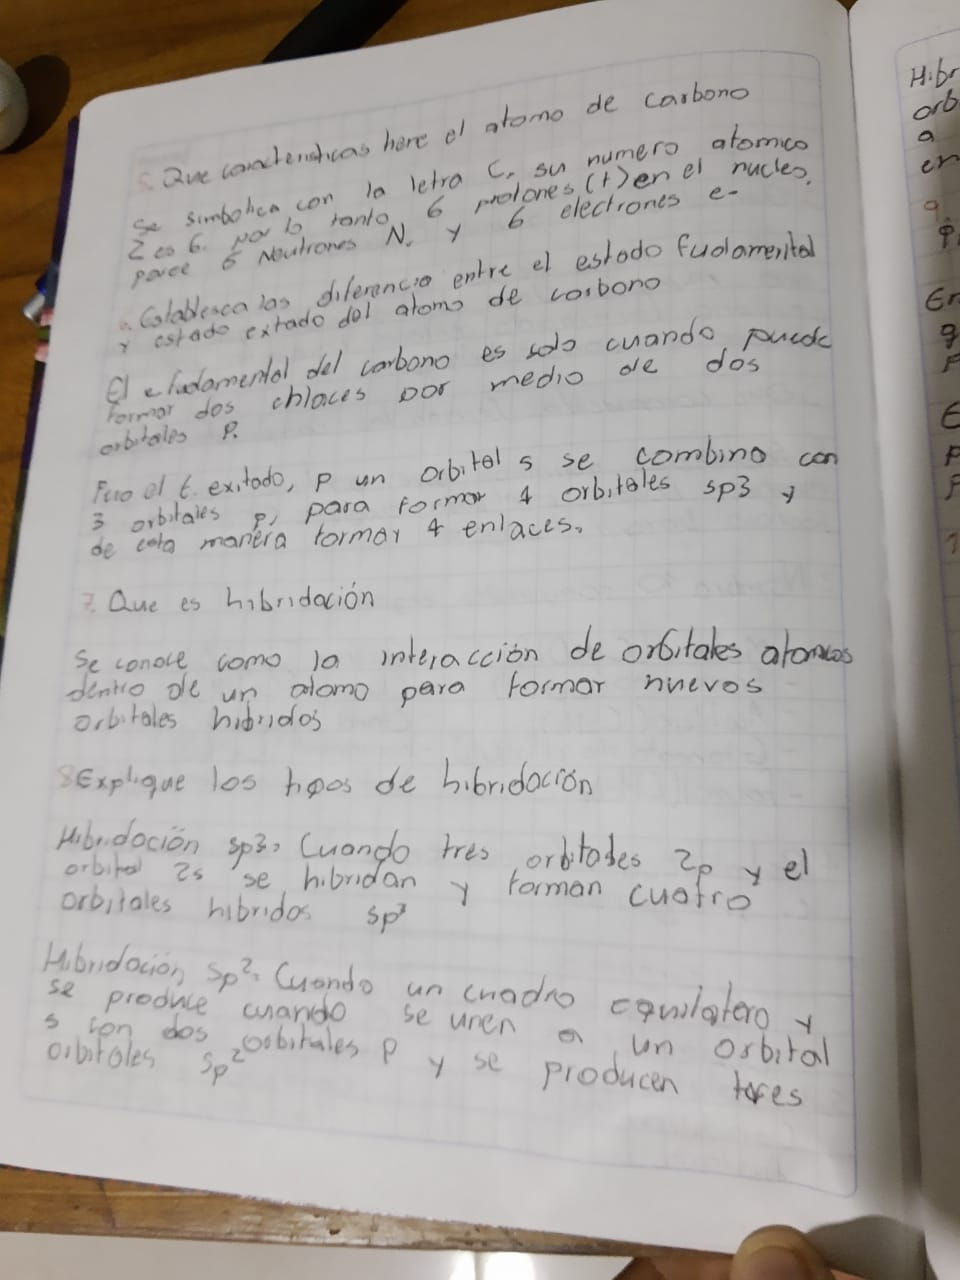 5. Que caracteristicas tiene el atomo de carbono
Se simboliza con la letra C, su numero atomico
Z es 6. por lo tanto 6 protones (+) en el nucleo,
posee 6 Neutrones N, y 6 electrones e-
6. Establesca las diferencia entre el estado fudamental
y estado extado del atomo de carbono
El e fudamental del carbono es solo cuando puede
formar dos enlaces por medio de dos
orbitales P.
el E. exitado, P un orbital s se combina con
3 orbitales p, para formar 4 orbitales sp3 y
de esta manera formar 4 enlaces.
7. Que es hibridación
Se conoce como la interacción de orbitales atomicos
dentro de un atomo para formar nuevos
orbitales hibridos
8. Explique los tipos de hibridación
Hibridación sp3: Cuando tres orbitales 2p y el
orbital 2s se hibridan y forman cuatro
orbitales hibridos sp³
Hibridación Sp²: Cuando un cuadro equilatero y
se produce cuando se unen a un orbital
s con dos orbitales P y se producen tres
orbitales sp²
Hibr
orb
a
en
9.
En
g
P
P